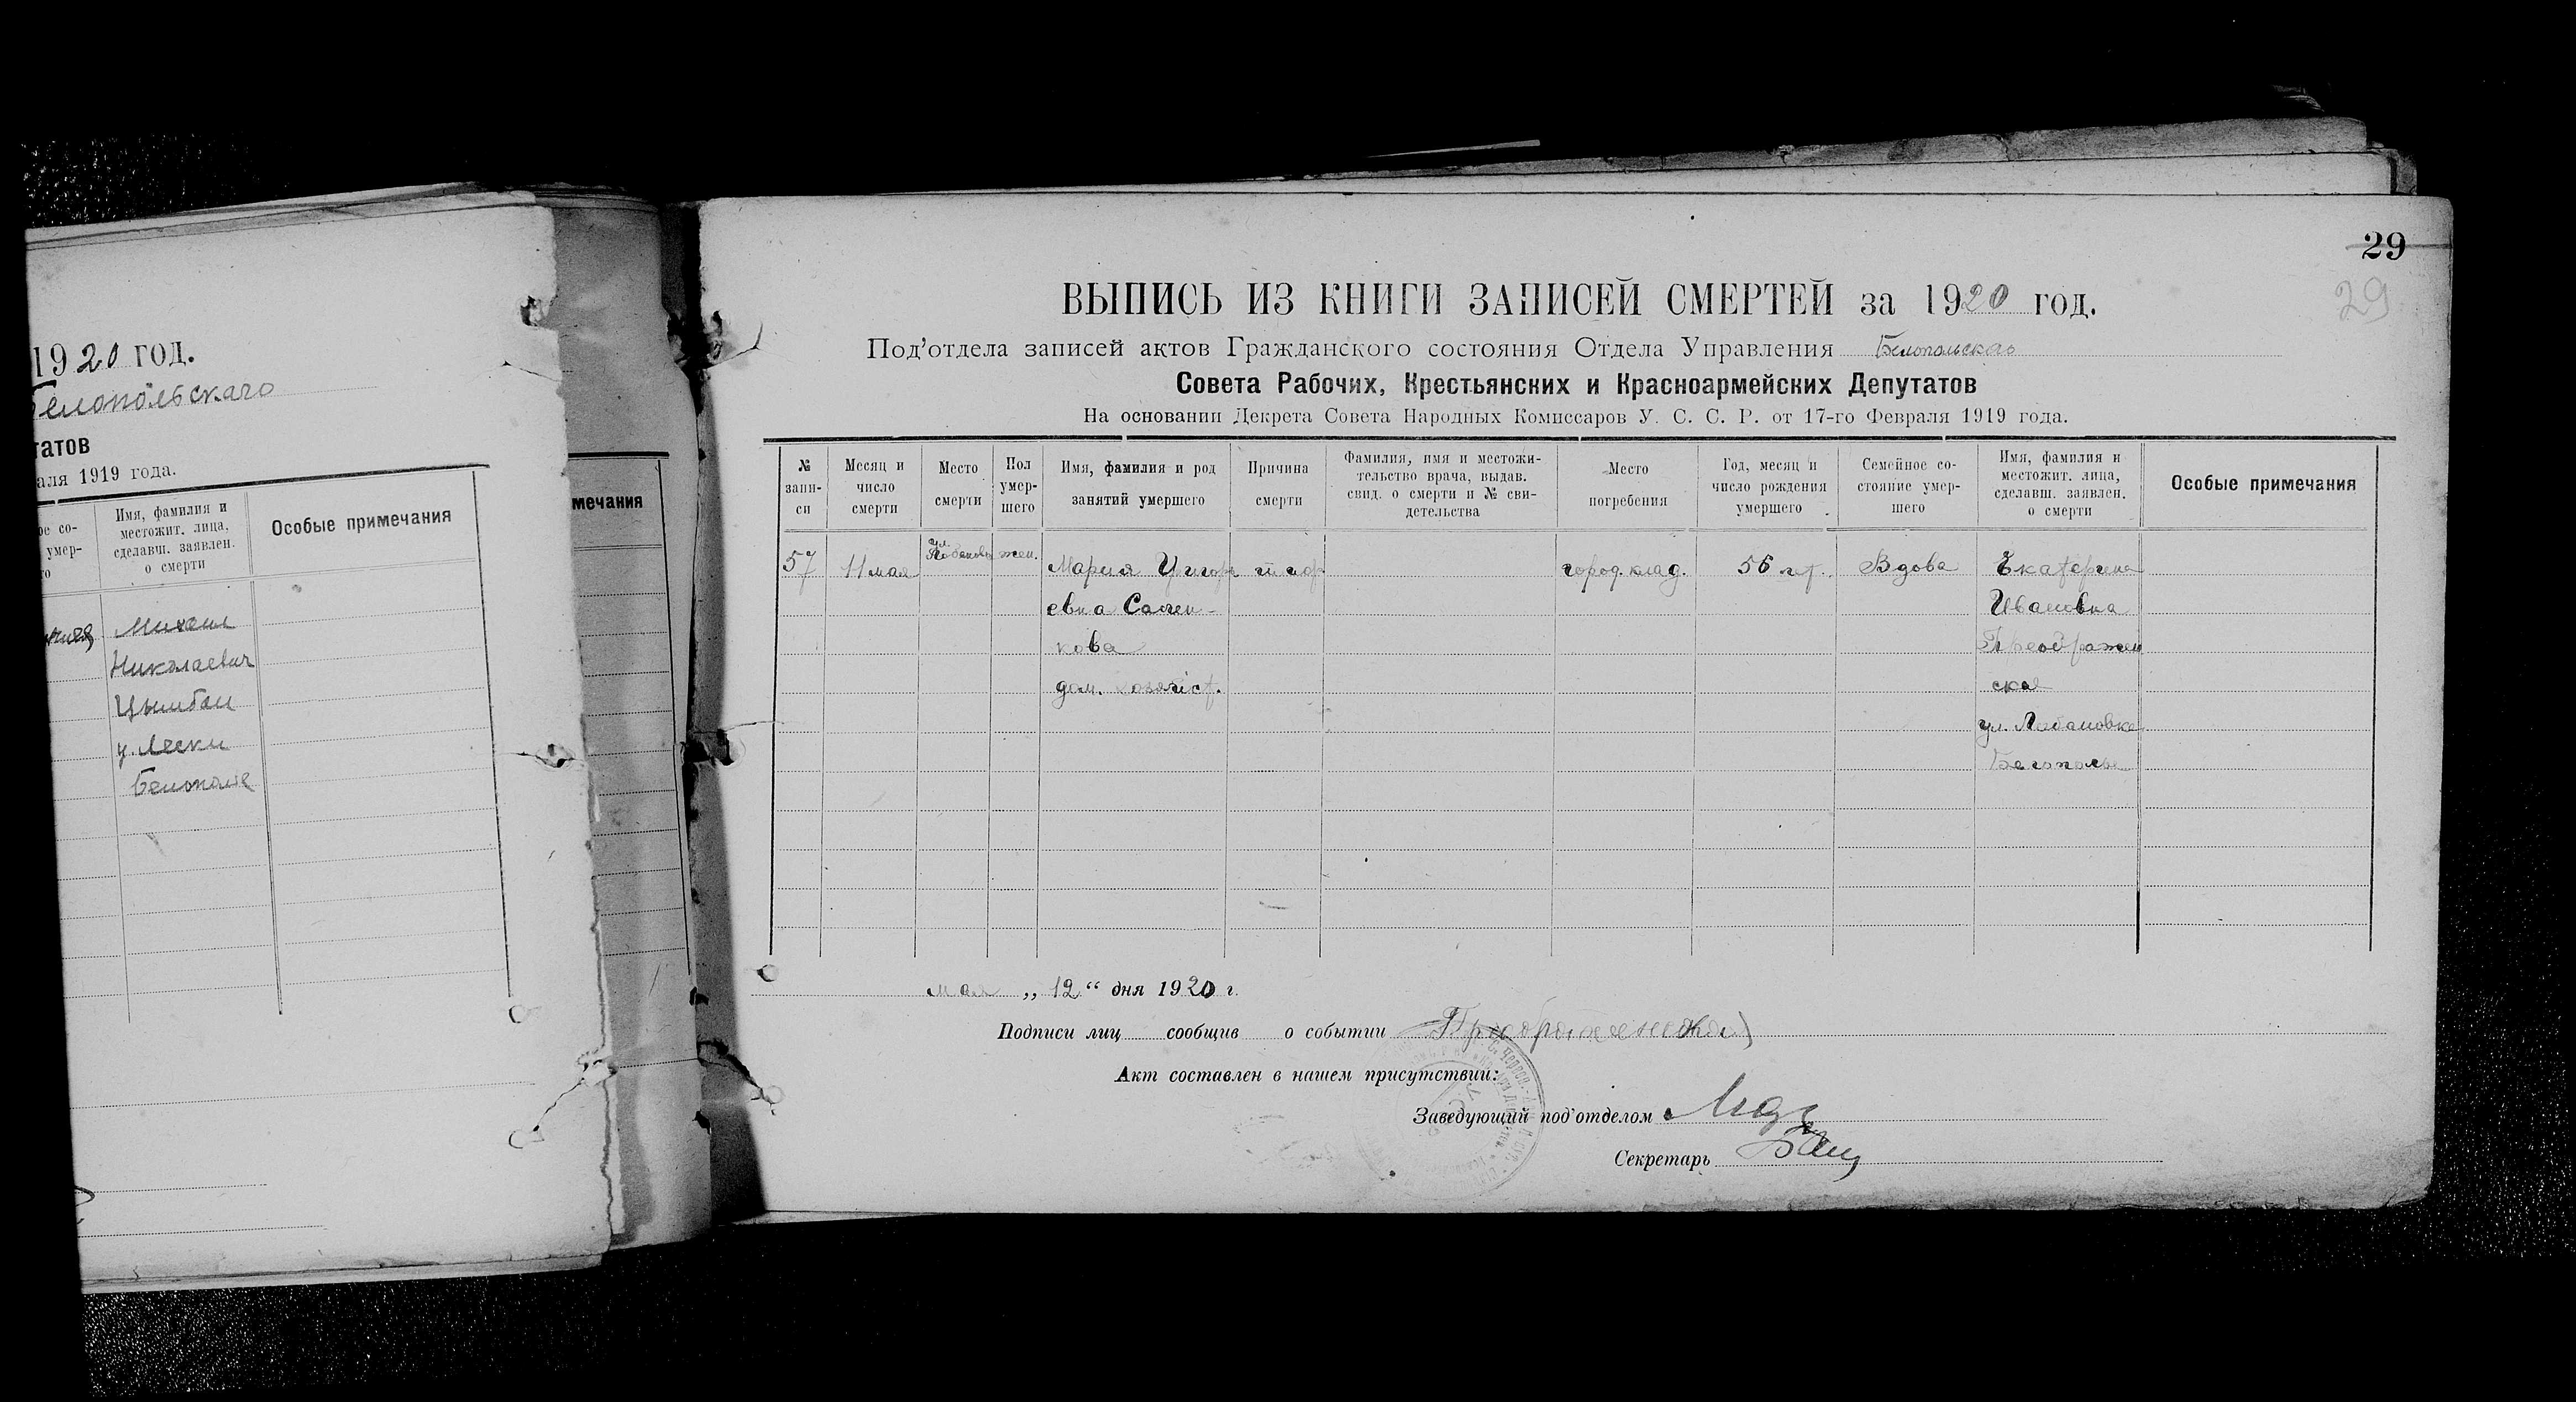 1920 год.
Белопольскаго
татов
аля 1919 года.
ое со-
умер-
го
Имя, фамилия и
местожит. лица,
сделавш. заявлен.
о смерти
Особые примечания
Михаил
Николаевич
Цымбал
у. Лески
Белополье
мечания
29
29
ВЫПИСЬ ИЗ КНИГИ ЗАПИСЕЙ СМЕРТЕЙ за 1920 год.
Под'отдела записей актов Гражданского состояния Отдела Управления Белопольскаго
Совета Рабочих, Крестьянских и Красноармейских Депутатов
На основании Декрета Совета Народных Комиссаров У. С. С. Р. от 17-го Февраля 1919 года.
№
запи-
си
Месяц и
число
смерти
Место
смерти
Пол
умер-
шего
Имя, фамилия и род
занятий умершего
Причина
смерти
Фамилия, имя и местожи-
тельство врача, выдав.
свид. о смерти и № сви-
детельства
Место
погребения
Год, месяц и
число рождения
умершего
Семейное со-
стояние умер-
шего
Имя, фамилия и
местожит. лица,
сделавш. заявлен.
о смерти
Особые примечания
57
11 мая
ул.
жен.
Мария Григорь
евна
кова
дом. хозяйст.
город. клад.
56 лет.
Вдова
Екатерина
Ивановна
Преображен
ская
ул. Лобановка
Белополье
мая „ 12 “ дня 1920 г.
Подписи лиц сообщив о событии Преображенская
Акт составлен в нашем присутствии:
Заведующий под'отделом
Секретарь